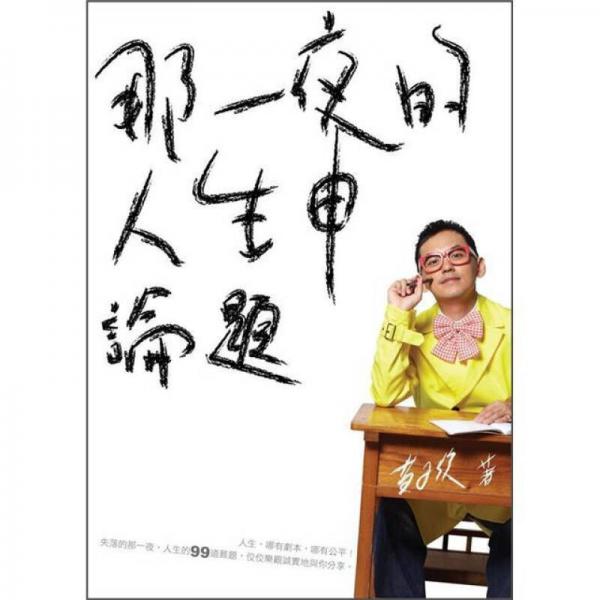 那一夜的
人生申
論題
黃子佼 著
人生，哪有劇本，哪有公平！
失落的那一夜，人生的99道難題，佼佼樂觀誠實地與你分享。